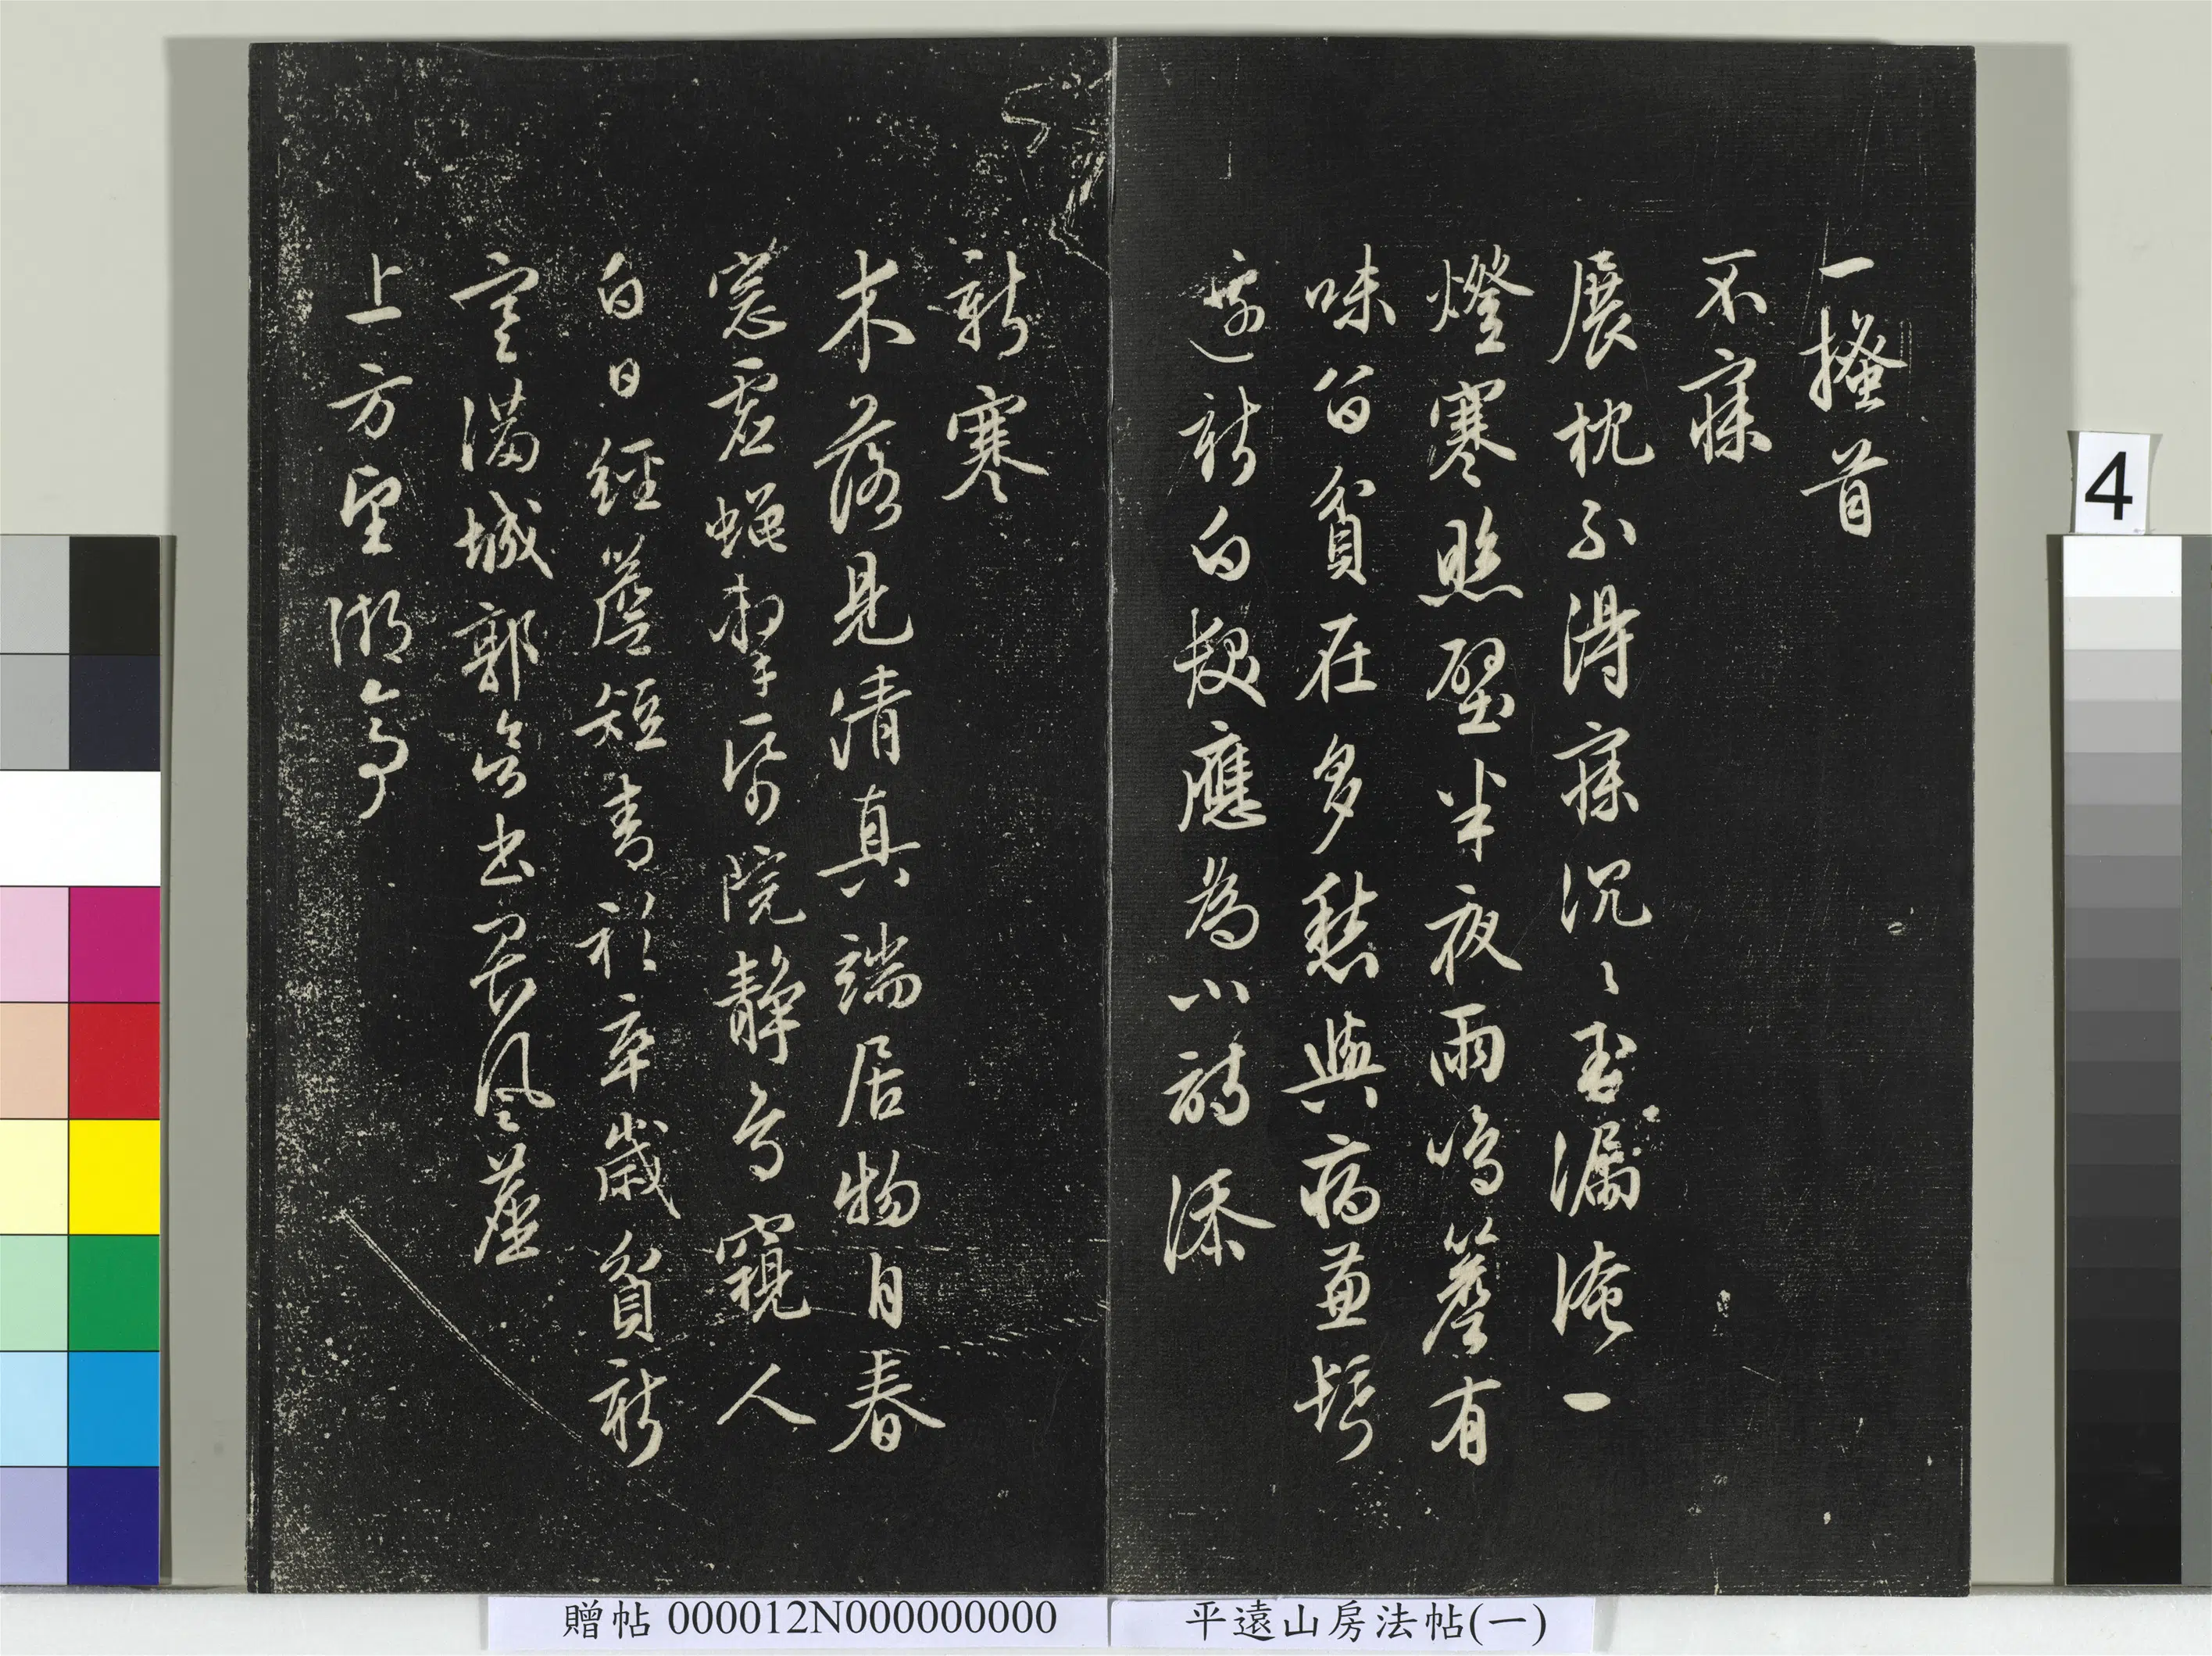 一搔首
不寐
展枕不得寐沉〻玉漏淹一
燈寒照壁半夜雨鳴簷有
味貧在多愁與病兼髩
邊新白髮應為小詩添
新寒
木落見清真端居物自春
窓虛蠅帋院靜鳥窺人
白日經簷短青衫卒歲貧新
寒滿城郭出畏風塵
上方望湖亭
4
贈帖 000012N000000000
平遠山房法帖(一)